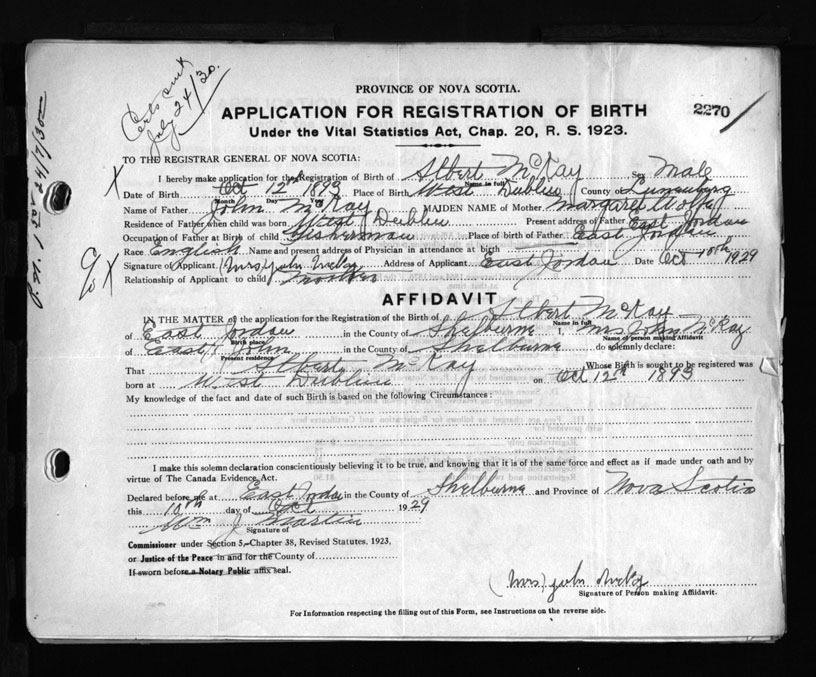 Certs sent
July 24/30.
PROVINCE OF NOVA SCOTIA.
APPLICATION FOR REGISTRATION OF BIRTH
2270
Under the Vital Statistics Act, Chap. 20, R. S. 1923.
TO THE REGISTRAR GENERAL OF NOVA SCOTIA:
I hereby make application for the Registration of Birth of Albert McKay Sex Male
Name in full
Date of Birth Oct 12th 1893 Place of Birth West Dublin County Lunenburg
Month Day Yr
Name of Father John McKay MAIDEN NAME of Mother Margaret Wolfe
Residence of Father when child was born West Dublin Present address of Father East Jordan
Occupation of Father at Birth of child Fisherman Place of birth of Father East Jordan
Race English Name and present address of Physician in attendance at birth
Signature of Applicant (Mrs) John McKay Address of Applicant East Jordan Date Oct 10th 1929
Relationship of Applicant to child Mother
AFFIDAVIT
IN THE MATTER of the application for the Registration of the Birth of Albert McKay
Name in full
of East Jordan in the County of Shelburne I, Mrs John McKay
Birth place Name of person making Affidavit
of East John in the County of Shelburne do solemnly declare:
Present residence
That Albert McKay Whose Birth is sought to be registered was
born at West Dublin on Oct 12th 1893
My knowledge of the fact and date of such Birth is based on the following Circumstances:
I make this solemn declaration conscientiously believing it to be true, and knowing that it is of the same force and effect as if made under oath and by
virtue of The Canada Evidence Act.
Declared before me at East Jordan in the County of Shelburne and Province of Nova Scotia
this 10th day of Oct 1929
Wm J Martin
Signature of
Commissioner under Section 5, Chapter 38, Revised Statutes, 1923,
or Justice of the Peace in and for the County of
If sworn before a Notary Public affix seal.
(Mrs) John McKay
Signature of Person making Affidavit.
For Information respecting the filling out of this Form, see Instructions on the reverse side.